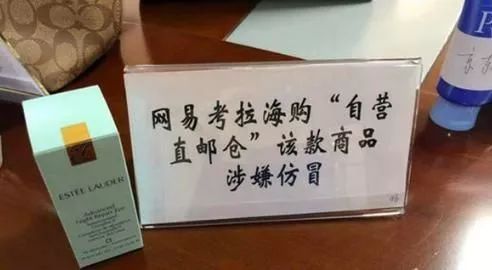 网易考拉海购“自营
直邮仓”该款商品
涉嫌仿冒
ESTEE LAUDER
Advanced
Night Repair Eye
P
京东